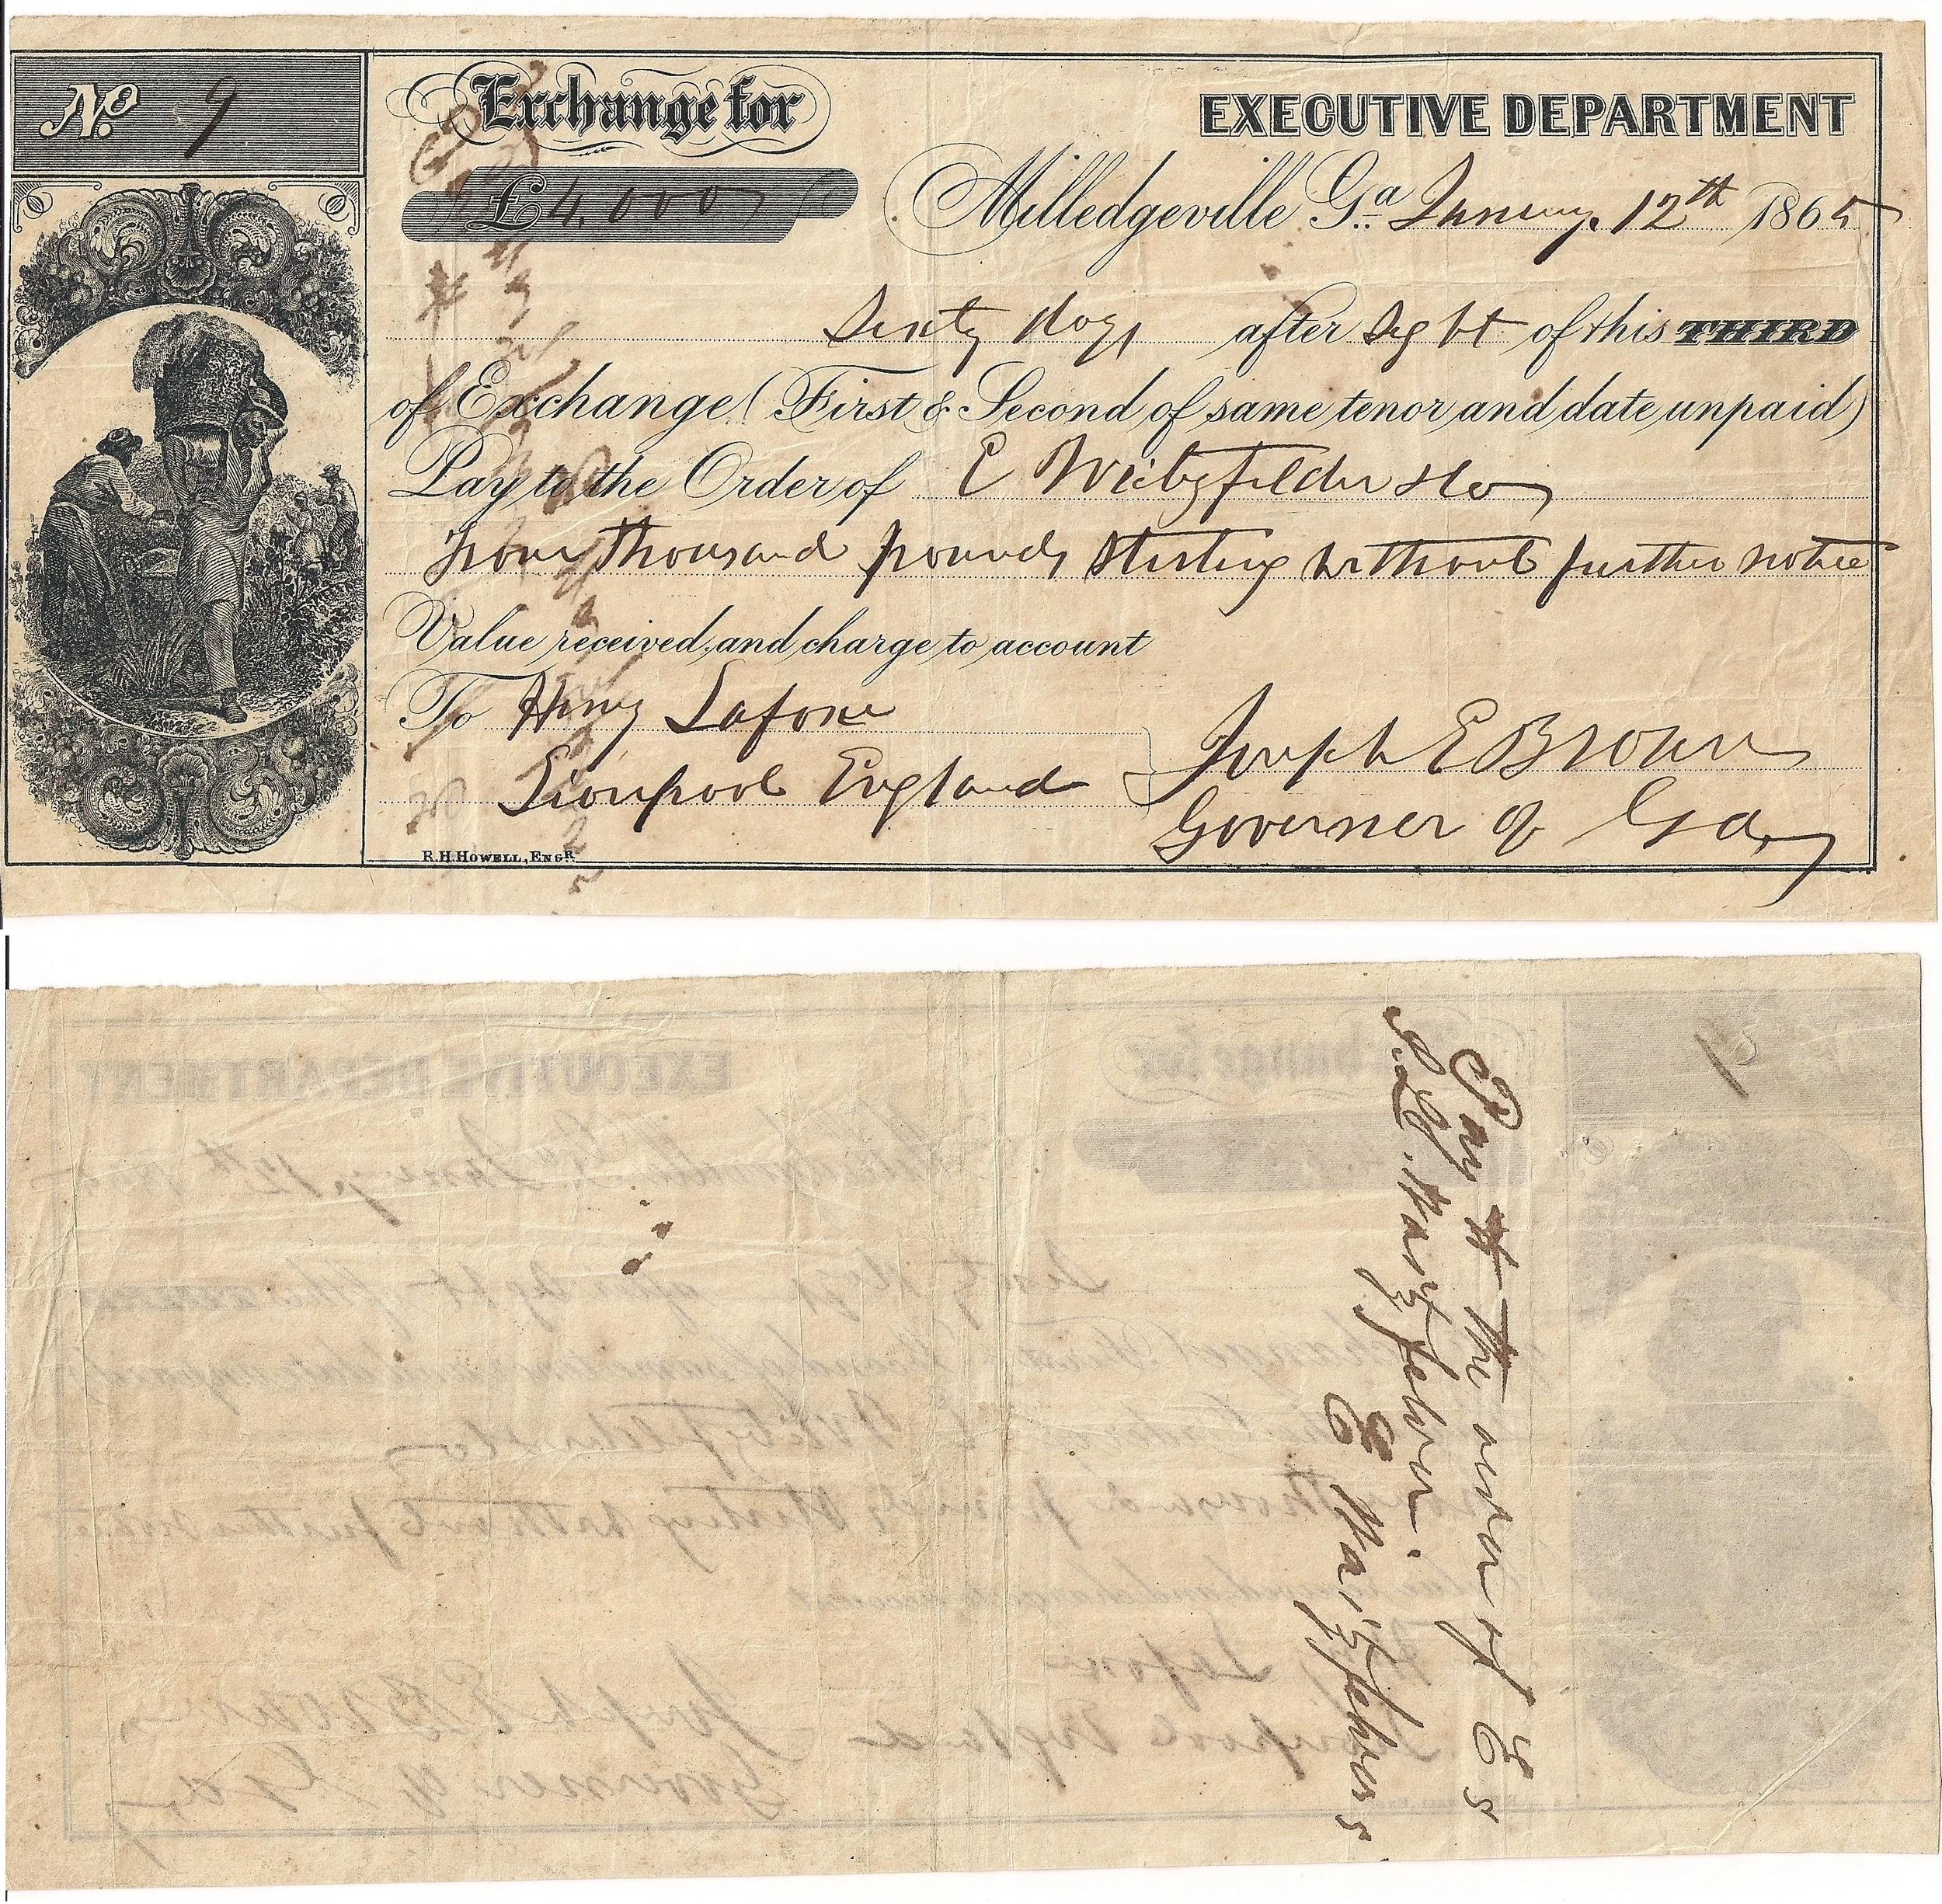 No. 9
Exchange for
£ 4,000
EXECUTIVE DEPARTMENT
Milledgeville Ga. January 12th 1865
Sixty days after Sight of this THIRD
of Exchange (First & Second of same tenor and date unpaid)
Pay to the Order of E
Four thousand pounds Sterling without further notice
Value received, and charge to account
To Henry Lafone
Liverpool England
Joseph E Brown
Governor of Ga
R.H. HOWELL, ENGR.
Pay to the order of